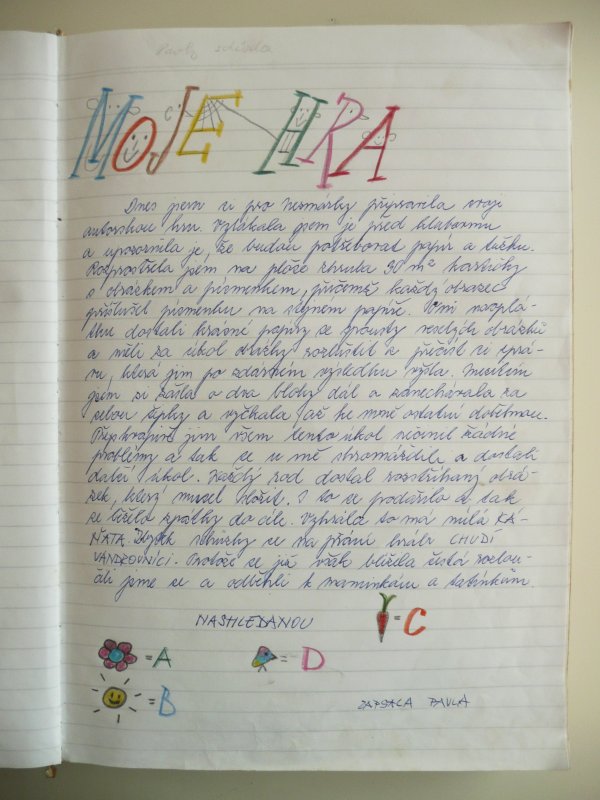 Pavly schůzka
MOJE HRA
Dnes jsem si pro Nesmárky připravila svoji
autorskou hru. Vylákala jsem je před klubovnu
a upozornila je, že budou potřebovat papír a tužku.
Rozprostřela jsem na ploše zhruba 30 m² kartičky
s obrázkem a písmenkem, přičemž každý obrázek
příslušel písmenku na stejném papíře. Oni naoplá-
tku dostali hravé papíry se spousty veselých obrázků
a měli za úkol obrázky rozluštit a přečíst si zprá-
vu, která jim po zdárném výsledku vyšla. Mezitím
jsem si zašla o dva bloky dál a zanechávala za
sebou šipky a vyčkala až ke mně ostatní doběhnou.
Překvapivě jim všem tento úkol nečinil žádné
problémy a tak se u mě shromáždili a dostali
další úkol. Každý rod dostal rozstříhaný obrá-
zek, který musel složit. I to se podařilo a tak
se běželo zpátky do cíle. Vyhrála to má milá KÁ-
ŇATA. Zbytek schůzky se na přání hrálo CHUDÍ
VANDROVNÍCI. Protože se již však blížila šestá rozlou-
čili jsme se a odběhli k maminkám a tatínkům.
NASHLEDANOU
= C
= A
= D
= B
ZAPSALA PAVLA